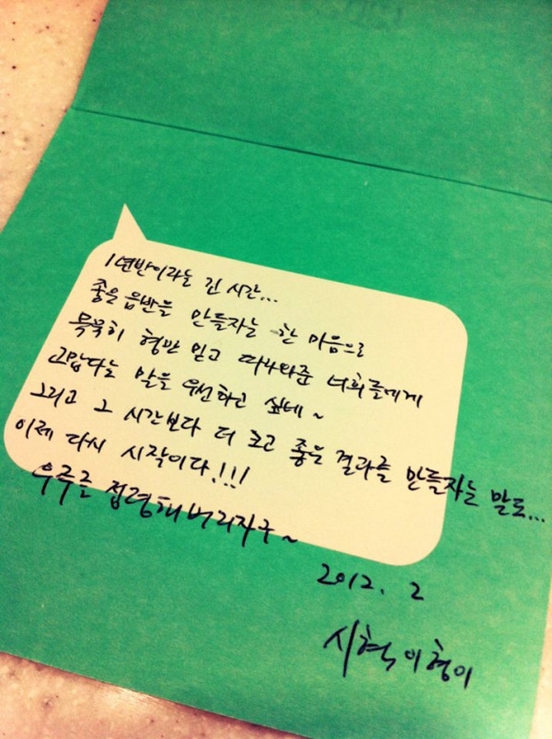 1년반이라는 긴 시간...
좋은 음반을 만들자는 한 마음으로
묵묵히 형만 믿고 따라와준 너희들에게
고맙다는 말을 우선하고 싶네~
그리고 그 시간보다 더 크고 좋은 결과를 만들자는 말도...
이제 다시 시작이다!!!
우주를 점령해버리자구~
2012. 2
시혁이형이